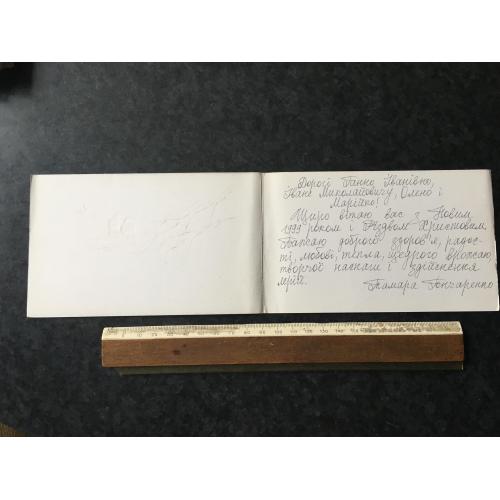 Дорогі Ганно Іванівно,
Іване Миколайовичу, Олено і
Марійко!
Щиро вітаю вас з Новим
1999 роком і Різдвом Христовим.
Бажаю доброго здоров'я, радос-
ті, любові, тепла, щедрого врожаю,
творчої наснаги і здійснення
мрій.
Тамара Гончаренко